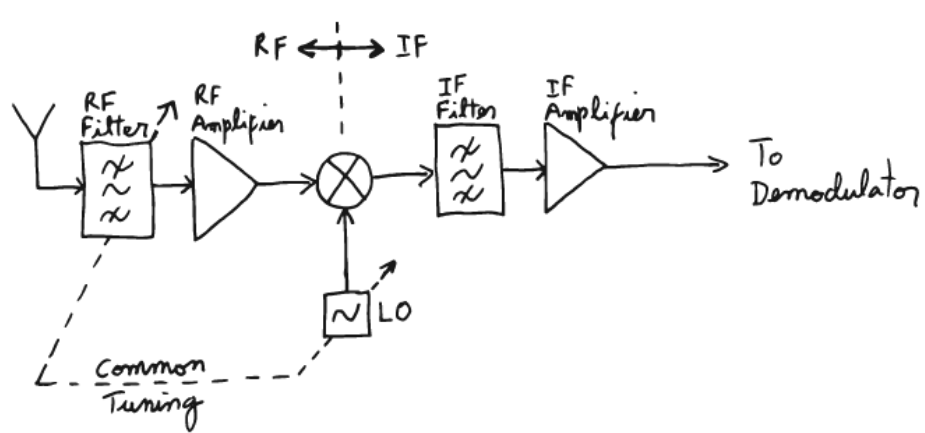 RF IF
RF
Filter
RF
Amplifier
IF
Filter
IF
Amplifier
To
Demodulator
LO
Common
Tuning